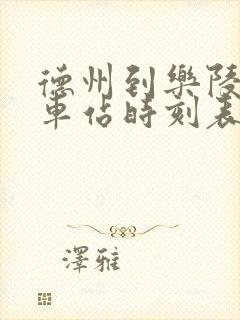 德州到樂陵
車佔時刻表
澤雅